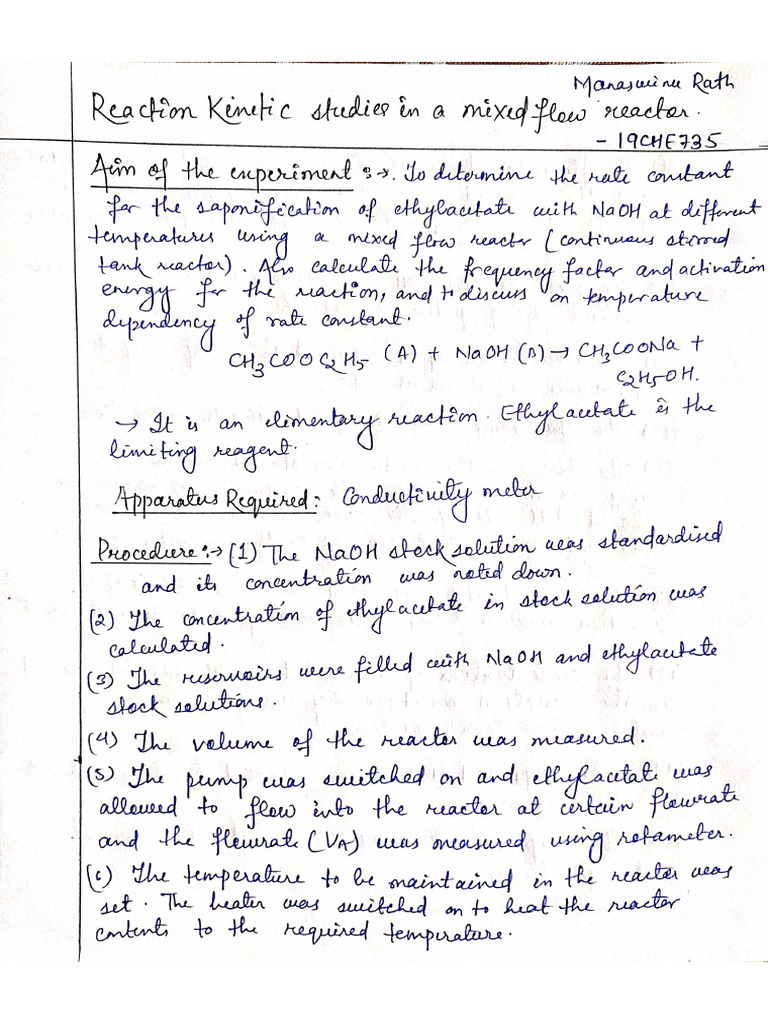 Manaswinee Rath
Reaction Kinetic studies in a mixed flow reactor.
- 19CHE735
Aim of the experiment :→. To determine the rate constant
for the saponification of ethylacetate with NaOH at different
temperatures using a mixed flow reactor (continuous stirred
tank reactor). Also calculate the frequency factor and activation
energy for the reaction, and to discuss on temperature
dependency of rate constant.
CH3COOC2H5 (A) + NaOH (B) → CH3COONa +
C2H5OH.
→ It is an elimentary reaction. Ethylacetate is the
limiting reagent.
Apparatus Required: Conductivity meter
Procedure :→ (1) The NaOH stock solution was standardised
and its concentration was noted down.
(2) The concentration of ethylacetate in stock solution was
calculated.
(3) The reservoirs were filled with NaOH and ethylacetate
stock solutions.
(4) The volume of the reactor was measured.
(5) The pump was switched on and ethylacetate was
allowed to flow into the reactor at certain flowrate
and the flowrate (VA) was measured using rotameter.
(6) The temperature to be maintained in the reactor was
set. The heater was switched on to heat the reactor
contents to the required temperature.